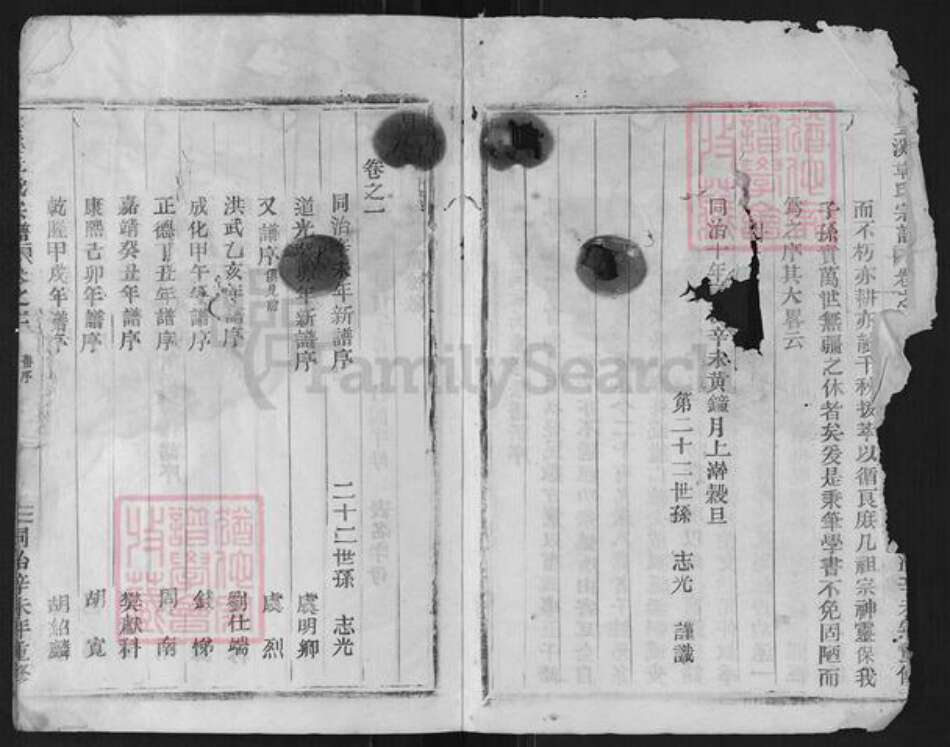 而不朽亦耕亦讀千秋拔萃以循良庶几祖宗神靈保我
子孫實萬世無疆之休者矣爰是秉筆學書不免固陋而
爲之序其大畧云
同治十年 辛未黃鐘月上澣穀旦
第二十二世孫 志光 謹識
卷之一
同治辛未年新譜序 二十二世孫 志光
道光 卯年新譜序 虞明卿
又譜序 俱見前 虞烈
洪武乙亥年譜序 劉仕端
成化甲午年譜序 錢悌
正德丁丑年譜序 周南
嘉靖癸丑年譜序 樊獻科
康熙己卯年譜序 胡寬
乾隆甲戌年譜序 胡紹麟
譜序
同治辛未年重修
FamilySearch